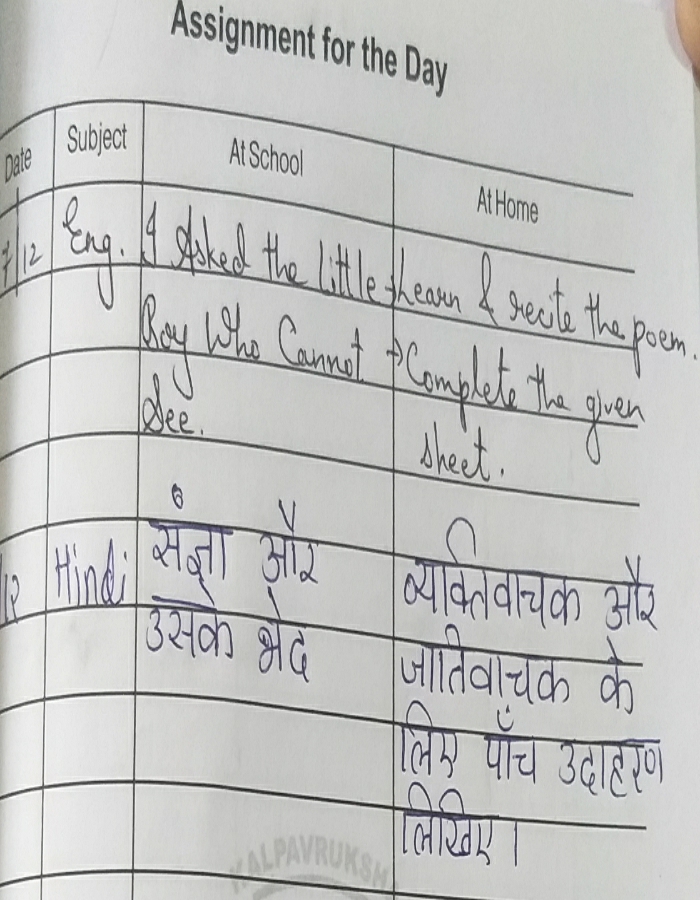 Assignment for the Day
Date Subject At School At Home
7/12 Eng. I Asked the little → Learn & recite the poem.
Boy Who Cannot → Complete the given
See. sheet.
12 Hindi संज्ञा और व्यक्तिवाचक और
उसके भेद जातिवाचक के
लिए पाँच उदाहरण
लिखिए।
KALPAVRUKSH